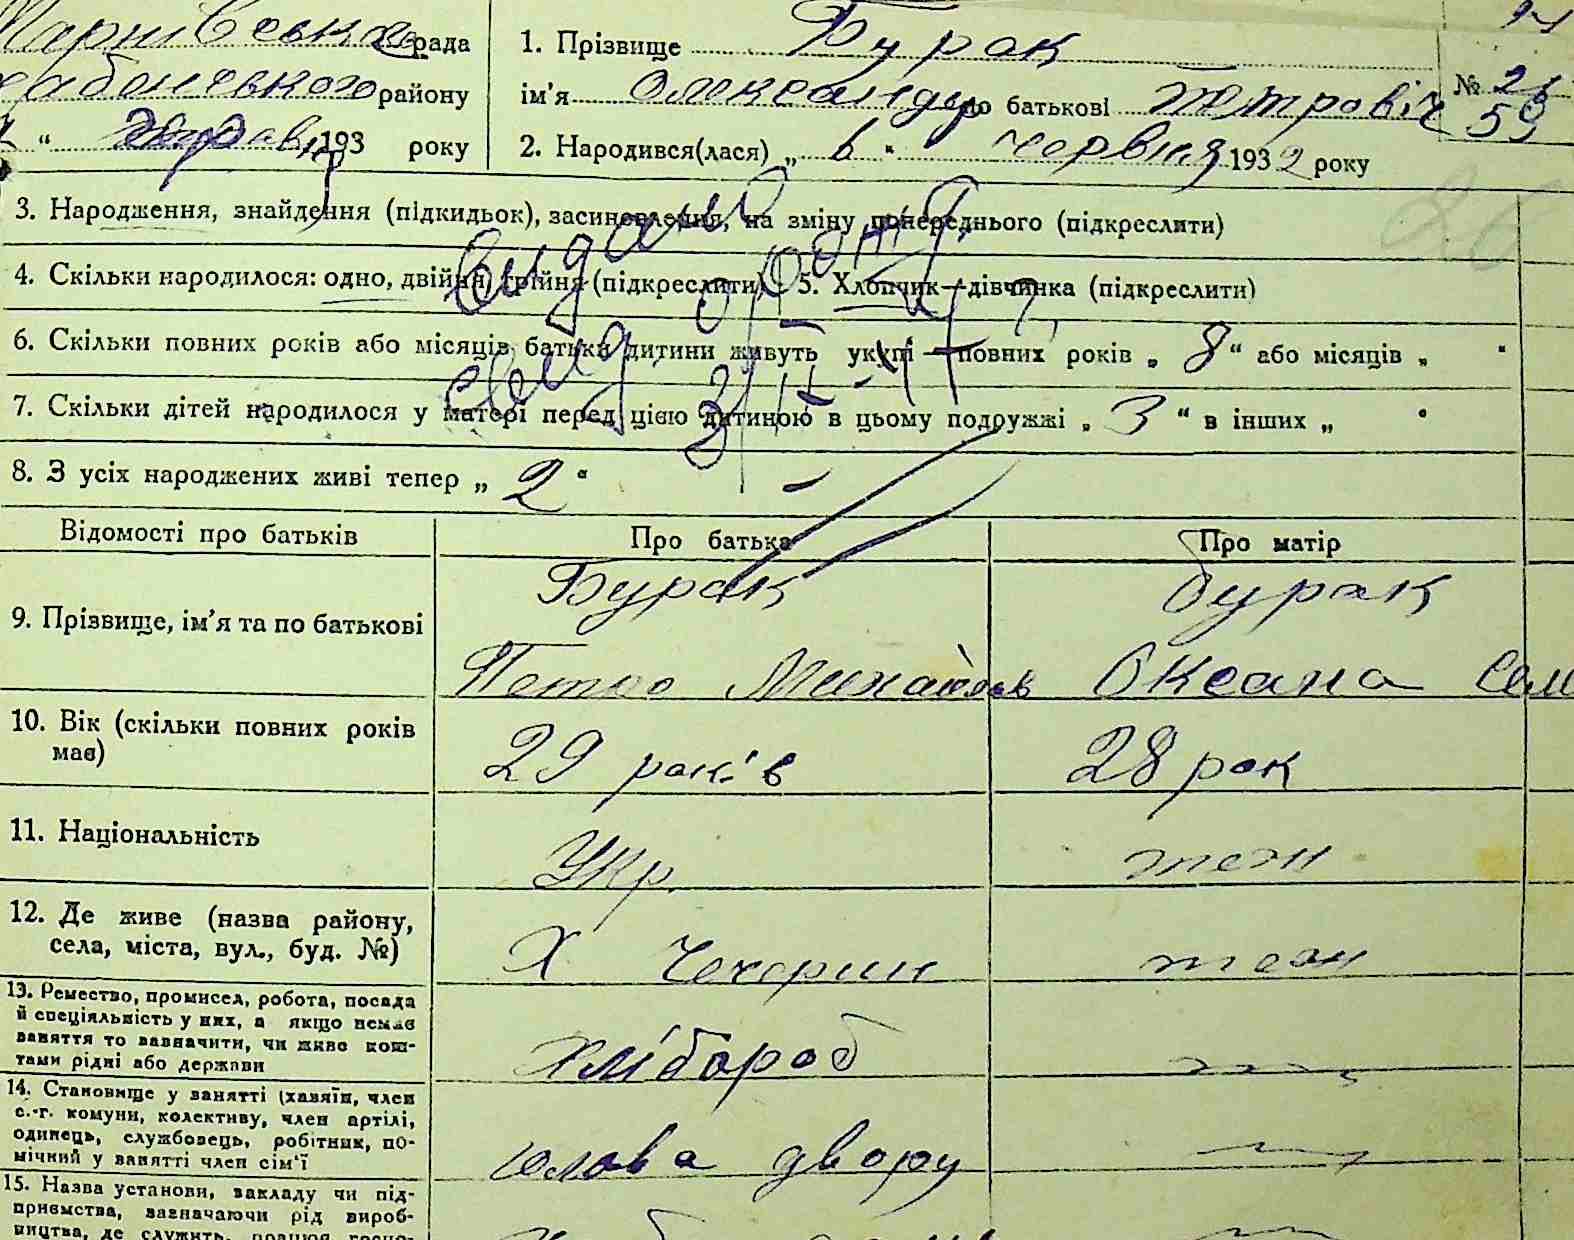 рада
району
193 року
1. Прізвище Бурак
ім'я Олександр по батькові Петровіч
2. Народився(лася) „ 6 “ червня 1932 року
№ 21
59
3. Народження, знайдення (підкидьок), засиновлення, на зміну попереднього (підкреслити)
4. Скільки народилося: одно, двійня, трійня (підкреслити) 5. Хлопчик—дівчинка (підкреслити)
6. Скільки повних років або місяців батьки дитини живуть укупі — повних років „ 8 “ або місяців „ “
7. Скільки дітей народилося у матері перед цією дитиною в цьому подружжі „ 3 “ в інших „ “
8. З усіх народжених живі тепер „ 2 “
Відомості про батьків Про батька Про матір
9. Прізвище, ім'я та по батькові
Бурак Бурак
Петро Михайлов Оксана Сем
10. Вік (скільки повних років має)
29 років 28 рок
11. Національність
Укр. теж
12. Де живе (назва району,
села, міста, вул., буд. №)
Х Чечерин теж
13. Ремество, промисел, робота, посада
й спеціяльність у них, а якщо немає
заняття то зазначити, чи живе кош-
тами рідні або держави
хлібороб
14. Становище у занятті (хазяїн, член
с.-г. комуни, колективу, член артілі,
одинець, службовець, робітник, по-
мічний у занятті член сім'ї
голова двору
15. Назва установи, закладу чи під-
приємства, зазначаючи рід вироб-
ництва, де служить, працює